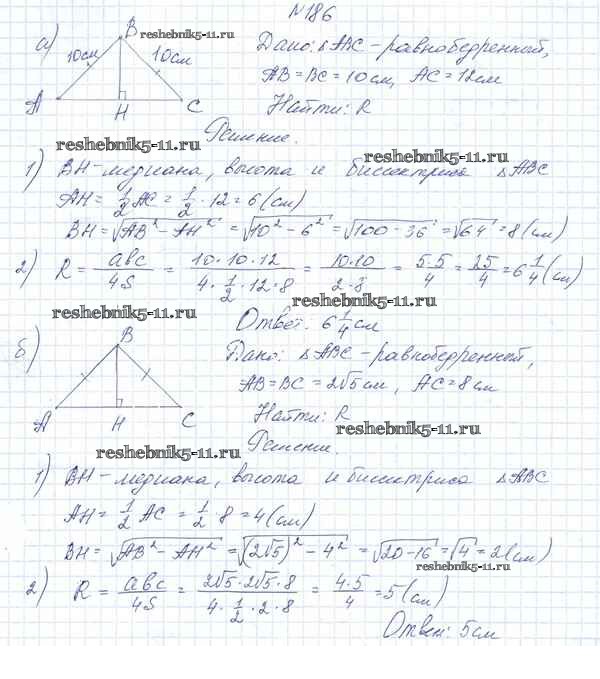 №186
а) B reshebnik5-11.ru
10см 10см
A H C
Дано: △ABC - равнобедренный,
AB = BC = 10 см, AC = 12 см
Найти: R
Решение.
reshebnik5-11.ru
reshebnik5-11.ru
1) BH - медиана, высота и биссектриса △ABC
AH = 1/2 AC = 1/2 · 12 = 6 (см)
BH = √(AB² - AH²) = √(10² - 6²) = √(100 - 36) = √64 = 8 (см)
2) R = abc/4S = (10 · 10 · 12)/(4 · 1/2 · 12 · 8) = (10 · 10)/(2 · 8) = (5 · 5)/4 = 25/4 = 6 1/4 (см)
reshebnik5-11.ru
reshebnik5-11.ru
Ответ: 6 1/4 см
б) B
A H C
Дано: △ABC - равнобедренный,
AB = BC = 2√5 см, AC = 8 см
Найти: R
reshebnik5-11.ru
Решение.
reshebnik5-11.ru
1) BH - медиана, высота и биссектриса △ABC
AH = 1/2 AC = 1/2 · 8 = 4 (см)
BH = √(AB² - AH²) = √((2√5)² - 4²) = √(20 - 16) = √4 = 2 (см)
reshebnik5-11.ru
2) R = abc/4S = (2√5 · 2√5 · 8)/(4 · 1/2 · 2 · 8) = (4 · 5)/4 = 5 (см)
Ответ: 5 см